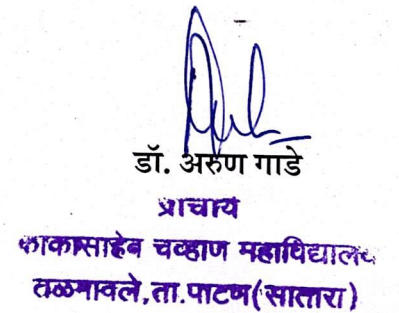 डॉ. अरुण गाडे
प्राचार्य
काकासाहेब चव्हाण महाविद्यालय
तळमावले,ता.पाटण(सातारा)